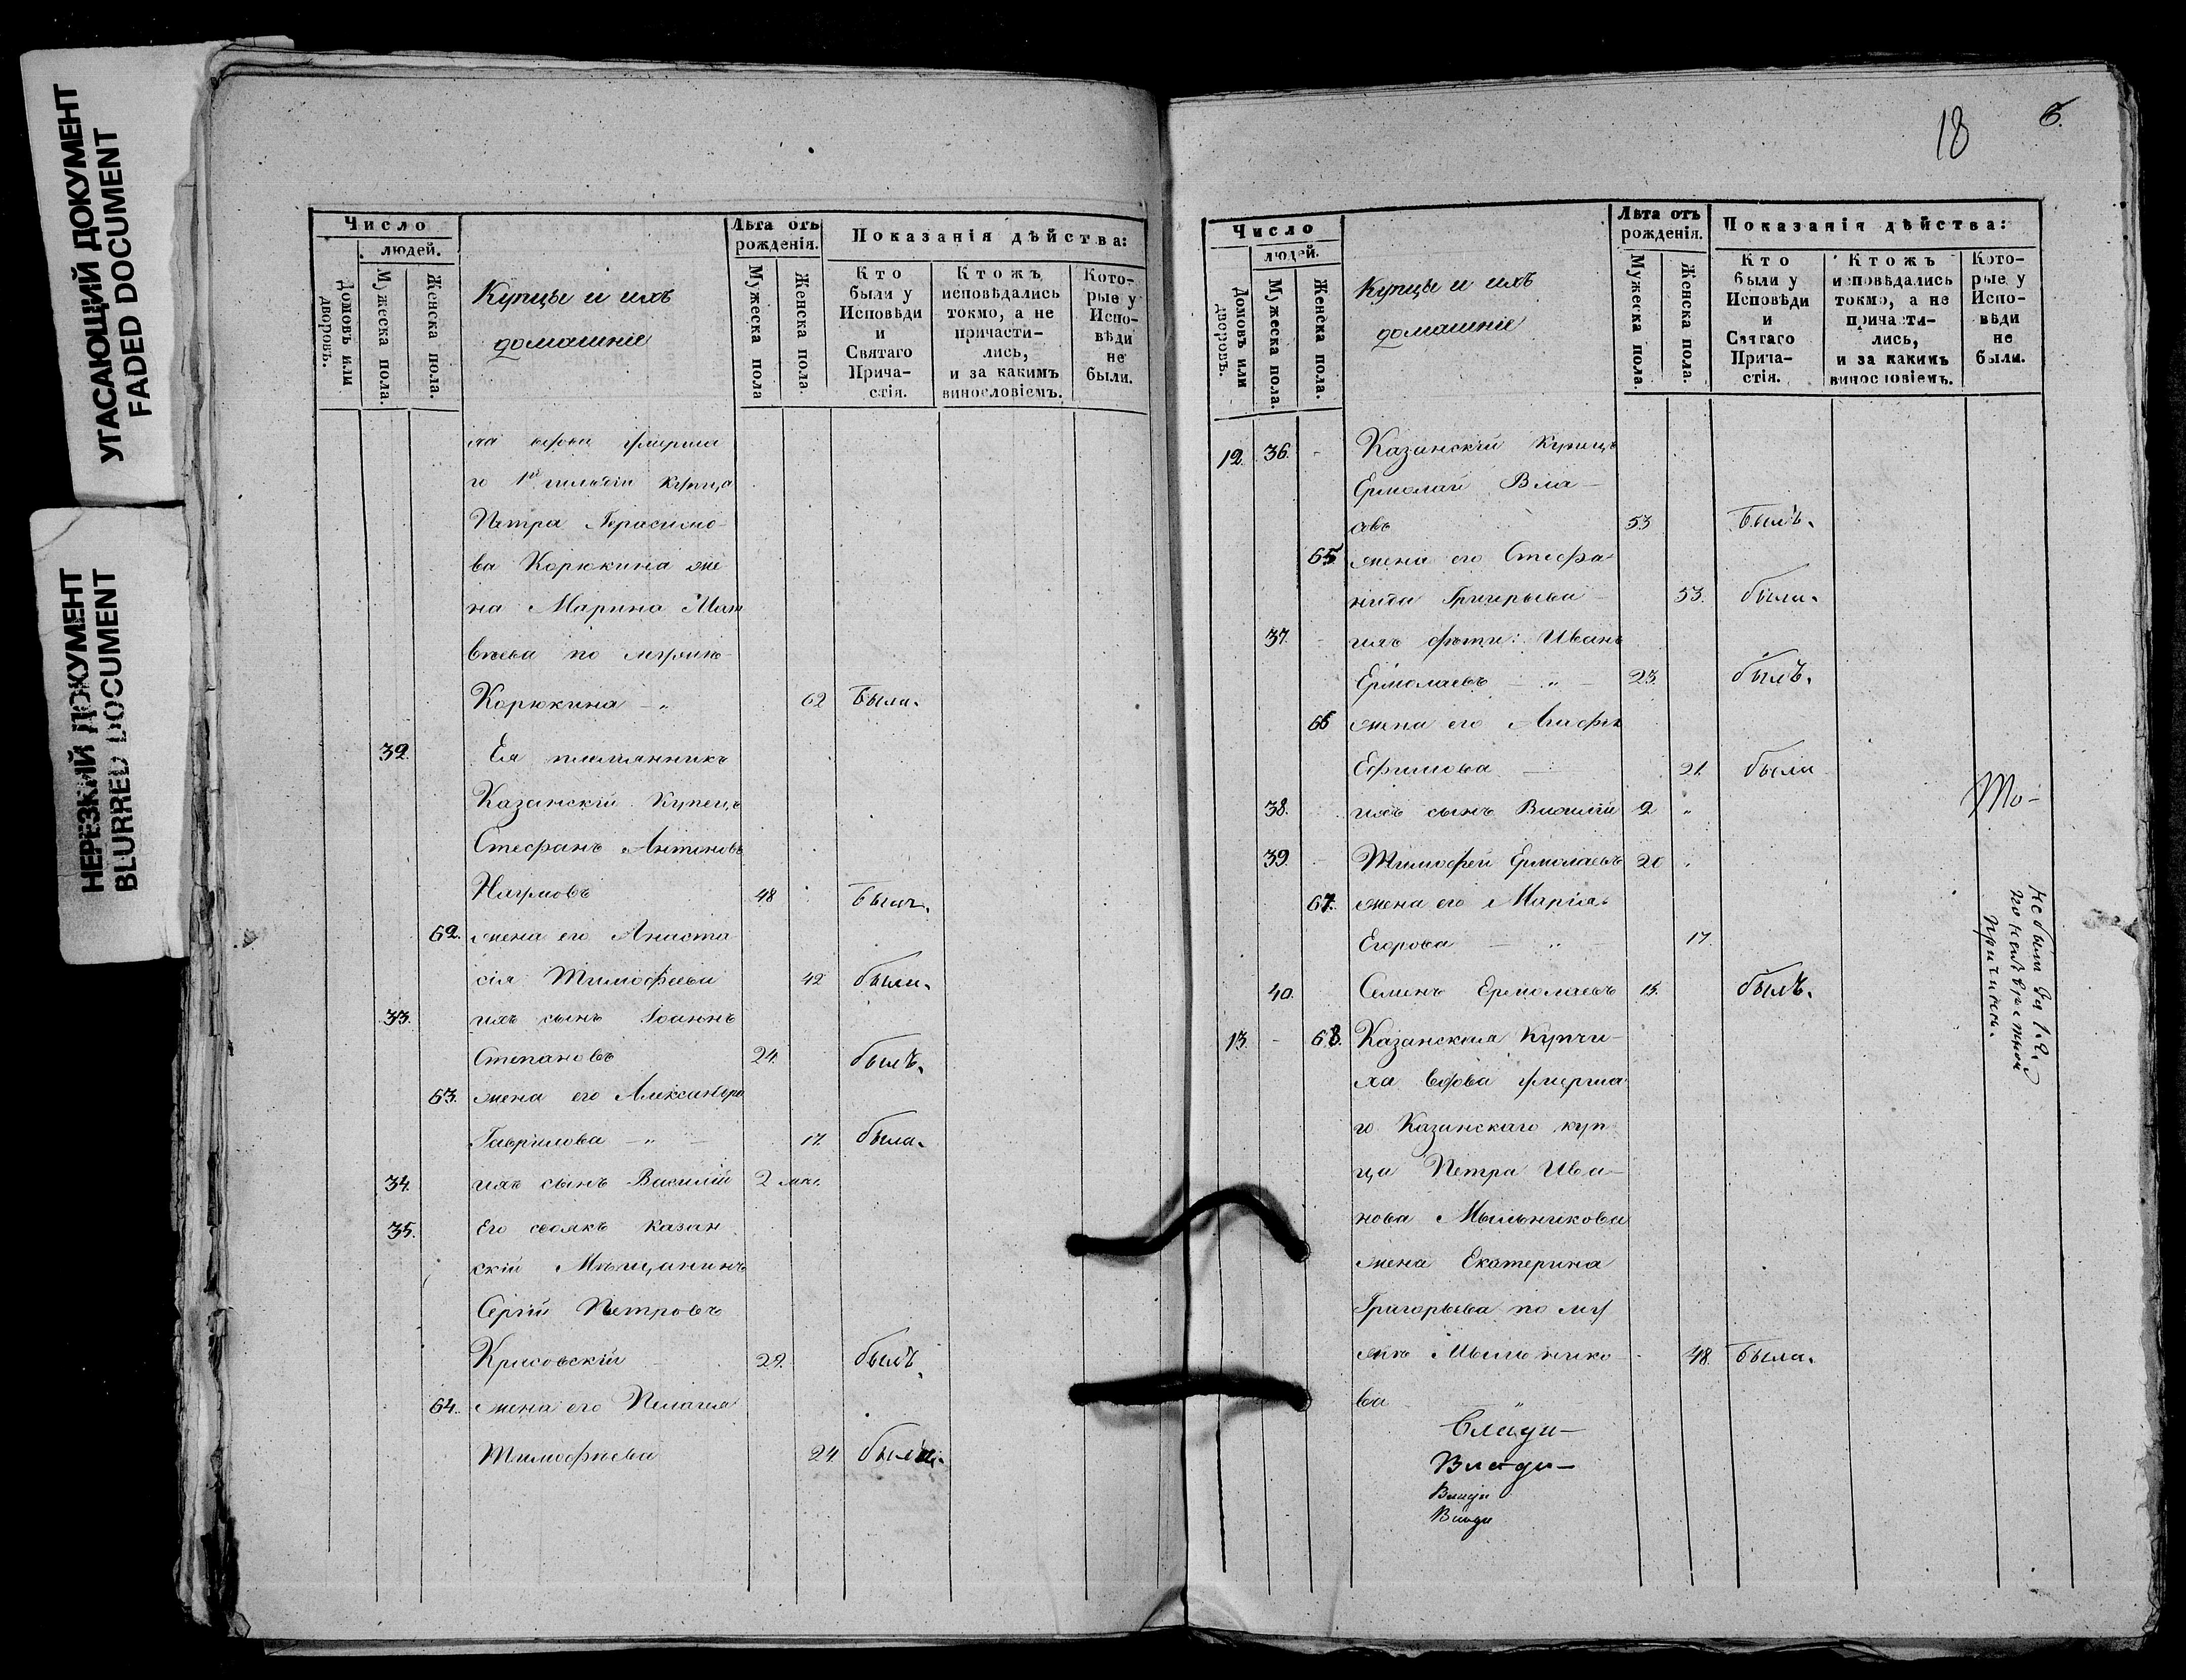 УГАСАЮЩИЙ ДОКУМЕНТ
FADED DOCUMENT
НЕРЕЗКИЙ ДОКУМЕНТ
BLURRED DOCUMENT
Число
людей.
Домовъ или дворовъ.
Мужеска пола.
Женска пола.
Купцы и ихъ
домашніе
Лѣта отъ
рожденія.
Мужеска пола
Женска пола.
Показанія дѣйства:
Кто
были у
Исповѣди
и
Святаго
Прича-
стія.
Ктожъ
исповѣдались
токмо, а не
причасти-
лись,
и за какимъ
винословіемъ.
Кото-
рые у
Испо-
вѣди
не
были.
ха вдова умерша
го 1й гильдіи купца
Петра Герасимо-
ва Корюкина же
на Марина Мат
вѣева по мужѣ
Корюкина - " 62 Была.
32. Ея племянникъ
Казанскій Купецъ
Стефанъ Антоновъ
Наумовъ 48 Былъ.
62. жена его Анаста
сія Тимофѣева 42 была.
33. ихъ сынъ Іоаннъ
Степановъ 24. былъ.
63. жена его Александра
Гаврилова - " - 17. была.
34. ихъ сынъ Василій 2 мѣс.
35. Его своякъ казан
скій Мѣщанинъ
Сергій Петровъ
Крисовскій 29. былъ.
64. жена его Пелагея
Тимофѣева 24 была.
18 6.
Число
людей.
Домовъ или дворовъ.
Мужеска пола.
Женска пола.
Купцы и ихъ
домашніе
Лѣта отъ
рожденія.
Мужеска пола.
Женска пола.
Показанія дѣйства:
Кто
были у
Исповѣди
и
Святаго
Прича-
стія.
Ктожъ
исповѣдались
токмо, а не
причасти-
лись,
и за какимъ
винословіемъ.
Кото-
рые у
Испо-
вѣди
не
были.
12. 36. - Казанскій Купецъ
Ермолай Вла-
овъ 53 Былъ.
65. жена его Стефа
нида Григорьева - 53. была.
37. - ихъ дѣти: Иванъ
Ермолаевъ - " - 23. былъ.
66 жена его Агафья
Ефимова - 21. была
38. ихъ сынъ Василій 2 "
39. - Тимофей Ермолаевъ 20 "
67. жена его Марія
Егорова - " - 17.
40. Семенъ Ермолаевъ 15. былъ.
То-
не были за
по
причинѣ.
13 - 68. Казанская Купчи-
ха вдова умерша
го Казанскаго куп
ца Петра Ива-
нова Мыльникова
жена Екатерина
Григорьева по му
жѣ Мыльнико - 48. Была.
ва
Влади-
Влади-
Влади
Влади